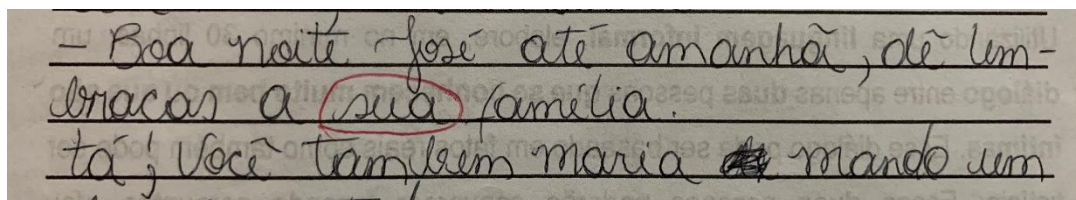 - Boa noite José até amanhã, dê lem-
braças a sua família.
tá; Você também maria mando um